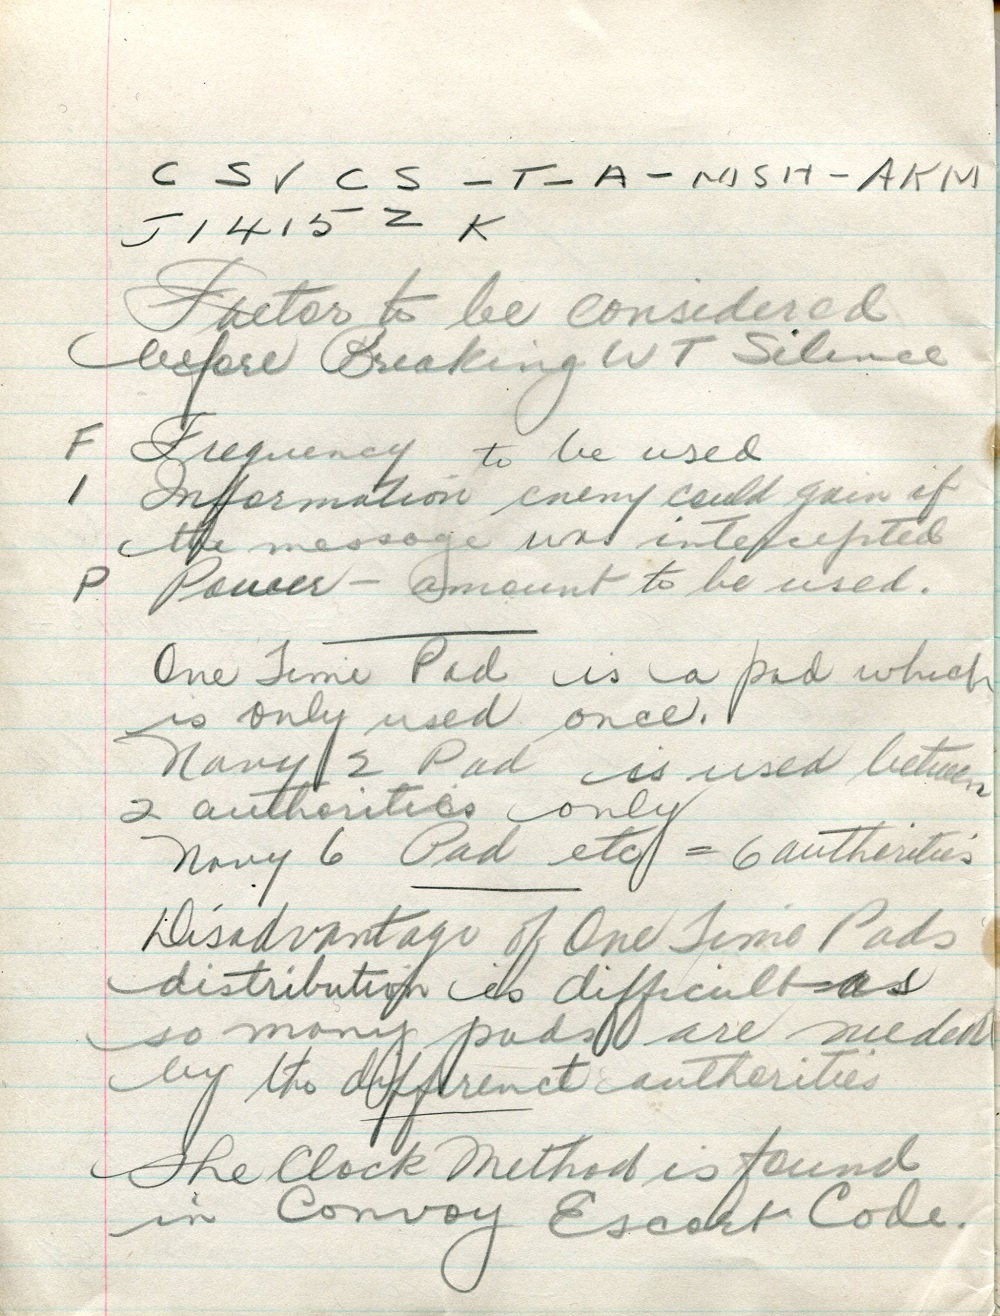 C S V C S - T - A - NISH - AKM
J 1 4 1 5 Z K
Factor to be considered
before Breaking W T Silence
F Frequency to be used
I Information enemy could gain if
the message was intercepted
P Power - amount to be used.
One Time Pad is a pad which
is only used once.
Navy 2 Pad is used between
2 authorities only
Navy 6 Pad etc = 6 authorities
Disadvantage of One Time Pads
distribution is difficult as
so many pads are needed
by the different authorities
The Clock Method is found
in Convoy Escort Code.